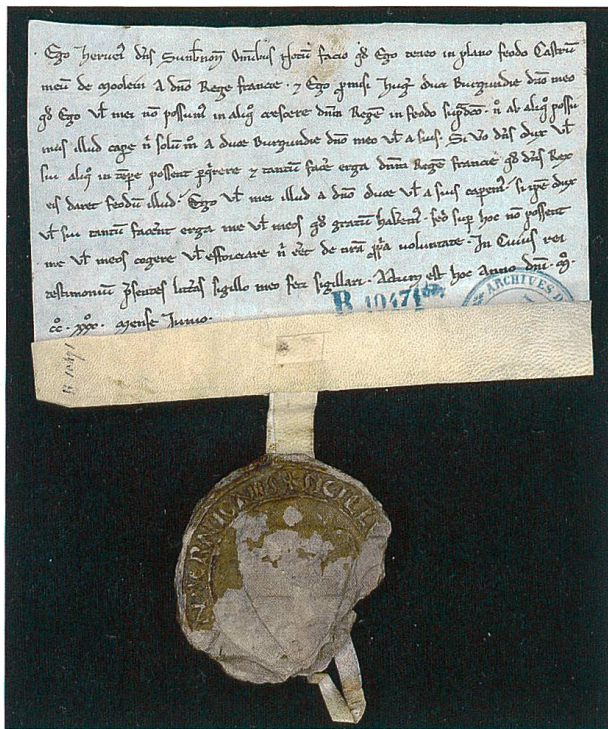 Ego herueꝰ dñs Sunbñoñ Omībus Notū facio qđ Ego teneo in plano feodo Castrū
meū de moolein A dño Rege francie · ⁊ Ego ꝓmisi hug̃ duci Burgundie dño meo
qđ Ego ul̃ mei nō possumꝰ in aliq̃ crescere dñm Regē in feodo sup̃dc̃o · ñ ab aliq̃ possu
mus illud cape ñ solūm̊ A duce Burgundie dño meo ul̃ a suis · Si ũo dñs dux ul̃
sui aliq̃ in tēpe possent ꝑq̃rere ⁊ tantū facẽ erga dñm Regē francie qđ dñs Rex
eis daret feodū illud · Ego ul̃ mei illud a dño duce ul̃ a suis capemꝰ · si ip̃e dux
ul̃ sui tantū facẽnt erga me ul̃ meos qđ gratū habemꝰ · sed sup hoc nō possent
me ul̃ meos cogere ul̃ efforciare ñ eẽt de nr̃a ꝓp̃a voluntate · In Cuiꝰ rei
testimoniū p̃sentes litt̃as sigillo meo feci sigillari · Actum est hoc Anno dñi · ꝳ ·
cc̊ · xxx̊ · mense Junio ·
B 10471
ARCHIVES D
B 10471
SIGILL